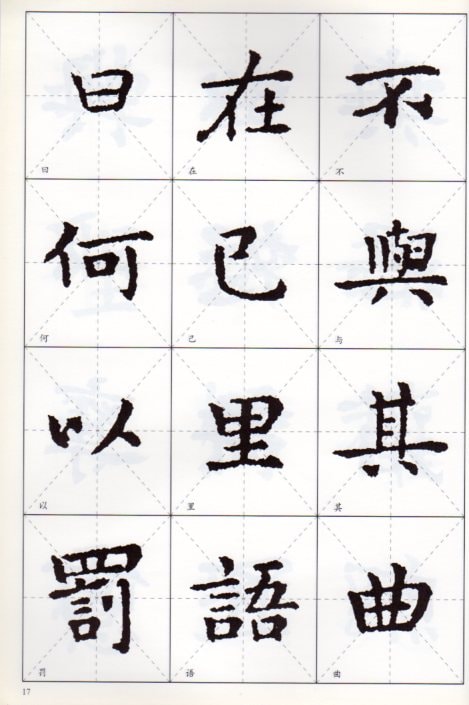 不
不
與
与
其
其
曲
曲
在
在
己
己
里
里
語
语
曰
曰
何
何
以
以
罰
罚
17